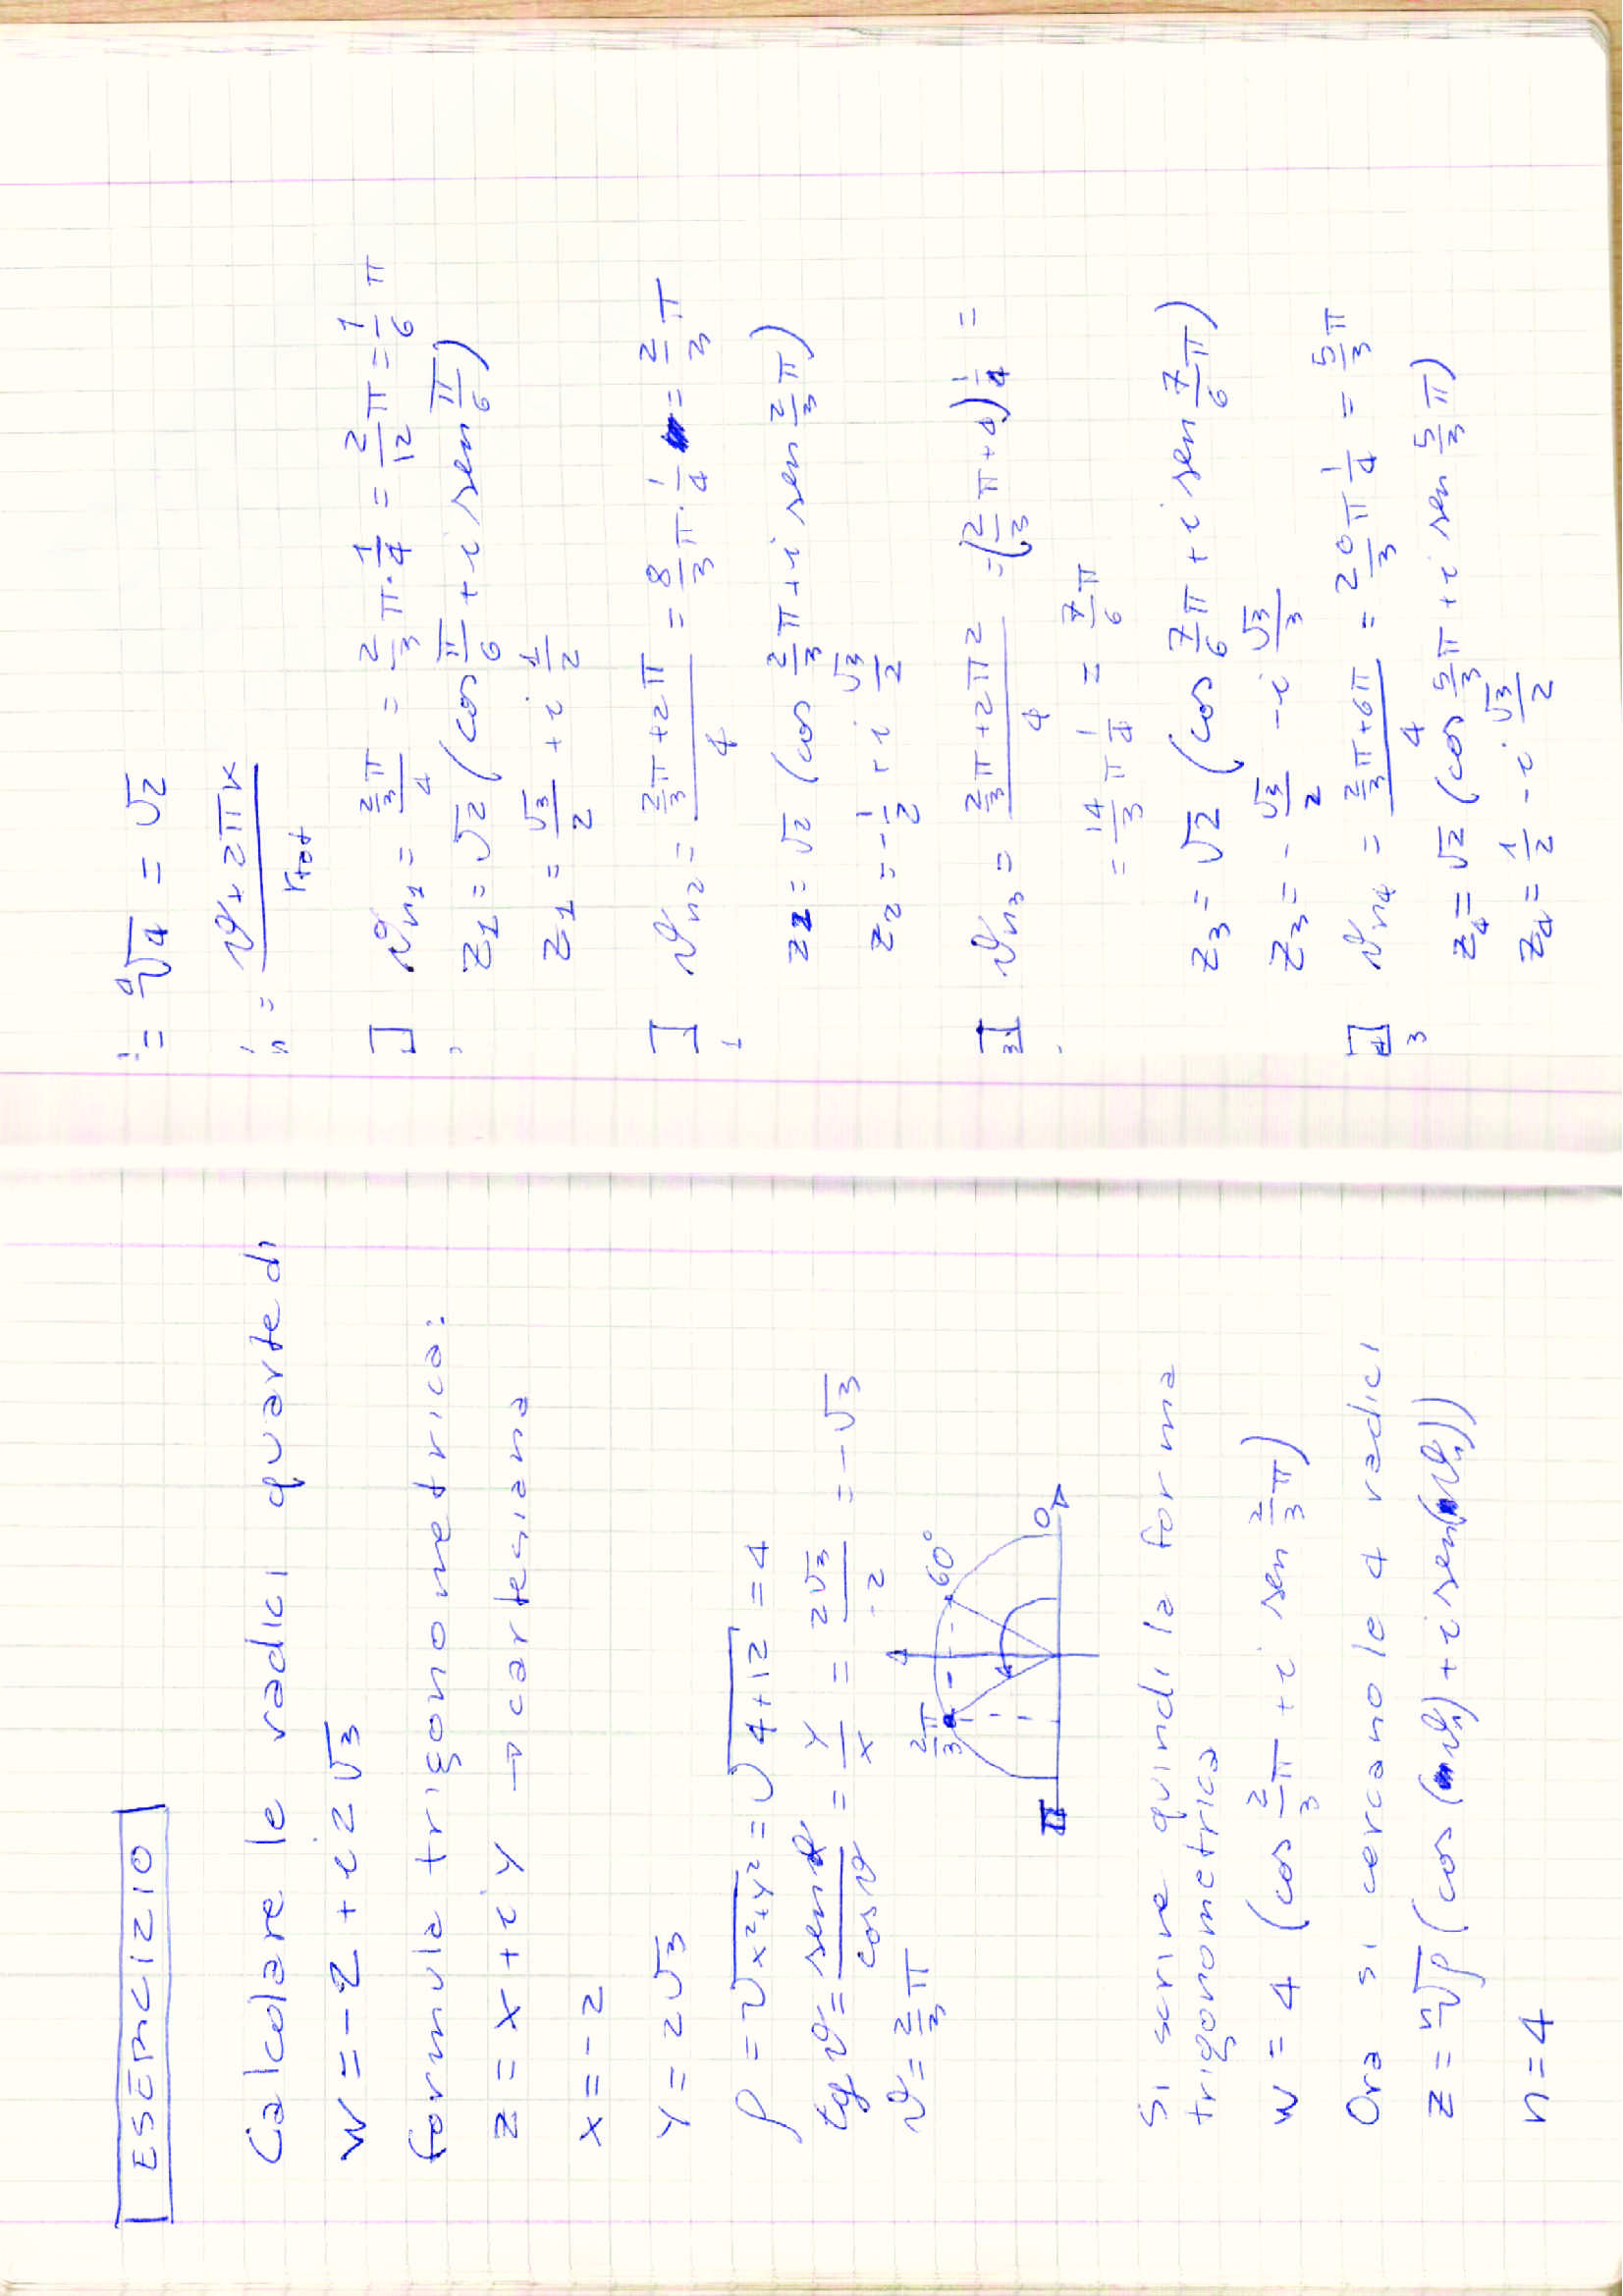 ESERCIZIO
Calcolare le radici quarte di
w = -2 + i2√3
formula trigonometrica:
z = x + iy → cartesiana
x = -2
y = 2√3
ρ = √x²+y² = √4+12 = 4
tg ϑ = sen ϑ / cos ϑ = y/x = 2√3/-2 = -√3
ϑ = 2/3 π
2π/3
60°
π
0
Si scrive quindi la forma
trigonometrica
w = 4 (cos 2/3 π + i sen 2/3 π)
Ora si cercano le 4 radici
z = ⁿ√ρ (cos (ϑn) + i sen (ϑn))
n = 4
= ⁴√4 = √2
= ϑ + 2πk / rtot
ϑn1 = 2/3 π / 4 = 2/3 π · 1/4 = 2/12 π = 1/6 π
z1 = √2 (cos π/6 + i sen π/6)
z1 = √3/2 + i 1/2
ϑn2 = 2/3 π + 2π / 4 = 8/3 π · 1/4 = 2/3 π
z2 = √2 (cos 2/3 π + i sen 2/3 π)
z2 = -1/2 + i √3/2
ϑn3 = 2/3 π + 2π2 / 4 = (2/3 π + 4) 1/4 =
= 14/3 π 1/4 = 7/6 π
z3 = √2 (cos 7/6 π + i sen 7/6 π)
z3 = - √3/2 - i √3/3
ϑn4 = 2/3 π + 6π / 4 = 20/3 π 1/4 = 5/3 π
z4 = √2 (cos 5/3 π + i sen 5/3 π)
z4 = 1/2 - i √3/2